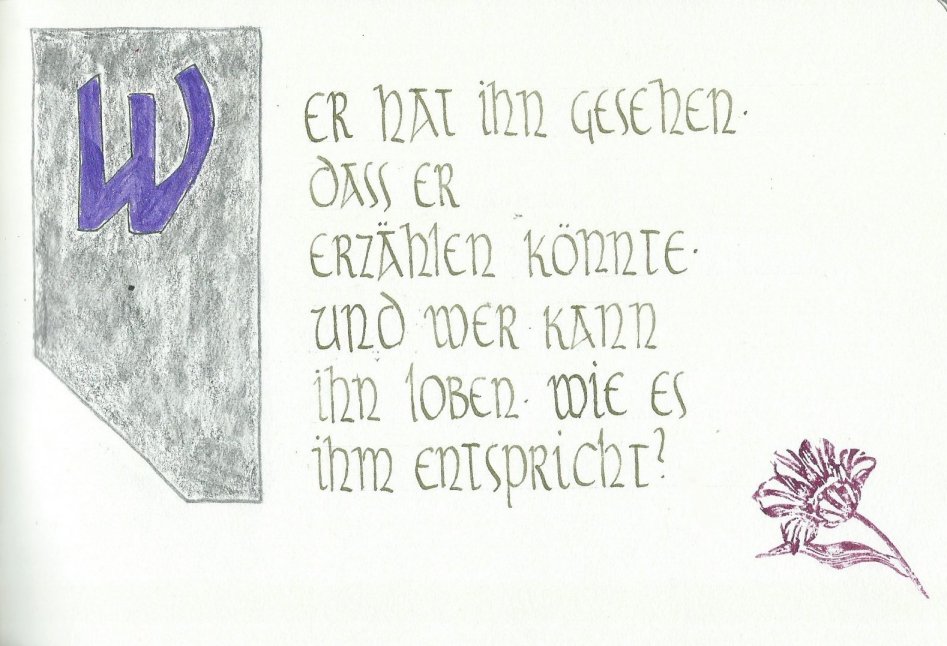 WER HAT IHN GESEHEN·
DASS ER
ERZÄHLEN KÖNNTE·
UND WER KANN
IHN LOBEN· WIE ES
IHM ENTSPRICHT?